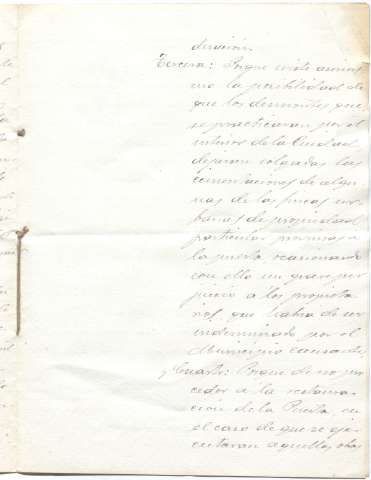 dirección.
Tercera: Porque existe asimis
mo la posibilidad de
que los desmontes que
se practicaran por el
interior de la Ciudad,
dejaran colgadas las
cimentaciones de algu
nas de las fincas ur
banas de propiedad
particular proximas a
la puerta, ocasionando
con ello un grave per
juicio a los propieta
rios, que habria de ser
indemnizado por el
Municipio
y Cuarta: Porque de no pro
ceder a la restaura
cion de la Puerta, en
el caso de que se eje
cutaran aquellas obras